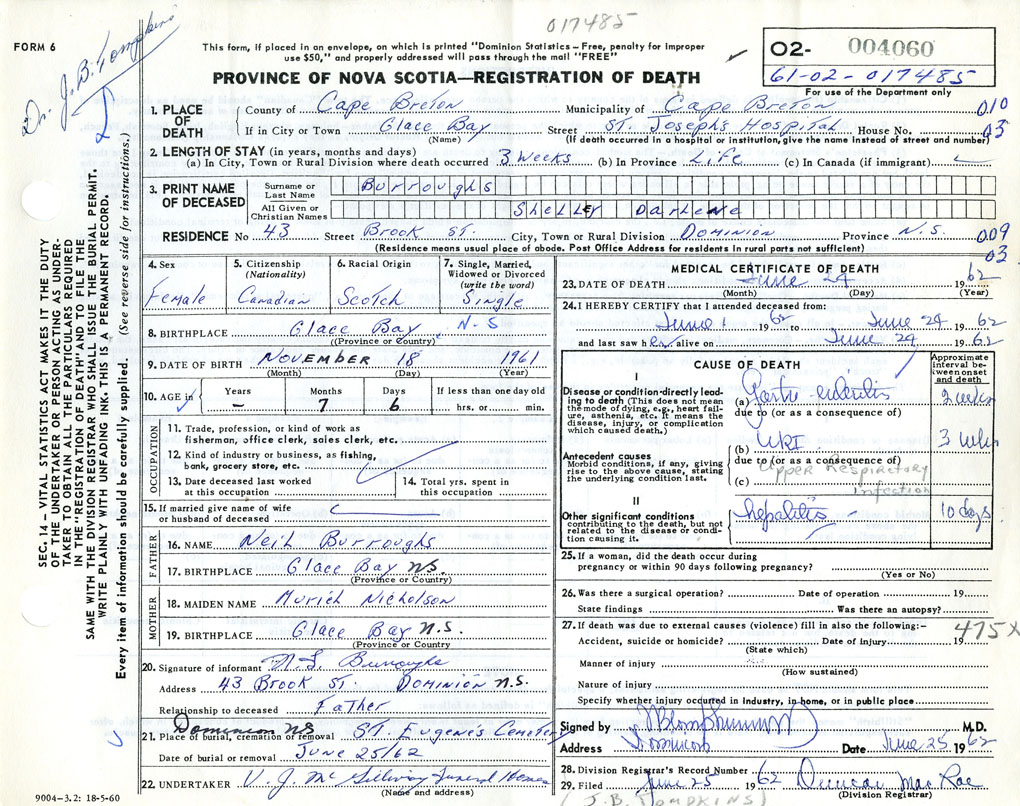 017485
FORM 6
Dr. J. B. Tompkins
This form, if placed in an envelope, on which is printed "Dominion Statistics – Free, penalty for improper
use $50," and properly addressed will pass through the mail "FREE"
PROVINCE OF NOVA SCOTIA—REGISTRATION OF DEATH
02- 004060
61-02-017485
For use of the Department only
SEC. 14 – VITAL STATISTICS ACT MAKES IT THE DUTY
OF THE UNDERTAKER OR PERSON ACTING AS UNDER-
TAKER TO OBTAIN ALL THE PARTICULARS REQUIRED
IN THE "REGISTRATION OF DEATH" AND TO FILE THE
SAME WITH THE DIVISION REGISTRAR WHO SHALL ISSUE THE BURIAL PERMIT.
WRITE PLAINLY WITH UNFADING INK. THIS IS A PERMANENT RECORD.
Every item of information should be carefully supplied. (See reverse side for instructions.)
1. PLACE OF DEATH County of Cape Breton Municipality of Cape Breton 010
If in City or Town Glace Bay Street St. Joseph's Hospital House No. 03
(Name) (If death occurred in a hospital or institution, give the name instead of street and number)
2. LENGTH OF STAY (in years, months and days)
(a) In City, Town or Rural Division where death occurred 3 Weeks (b) In Province Life (c) In Canada (if immigrant)
3. PRINT NAME OF DECEASED Surname or Last Name Burroughs
All Given or Christian Names Shelley Darlene
RESIDENCE No 43 Street Brook St. City, Town or Rural Division Dominion Province N.S. 009
(Residence means usual place of abode. Post Office Address for residents in rural parts not sufficient) 03
4. Sex Female
5. Citizenship (Nationality) Canadian
6. Racial Origin Scotch
7. Single, Married, Widowed or Divorced (write the word) Single
8. BIRTHPLACE Glace Bay N-S
(Province or Country)
9. DATE OF BIRTH November 18 1961
(Month) (Day) (Year)
10. AGE in Years – Months 7 Days 6 If less than one day old hrs. or min.
OCCUPATION
11. Trade, profession, or kind of work as
fisherman, office clerk, sales clerk, etc.
12. Kind of industry or business, as fishing,
bank, grocery store, etc.
13. Date deceased last worked at this occupation
14. Total yrs. spent in this occupation
15. If married give name of wife
or husband of deceased
FATHER
16. NAME Neil Burroughs
17. BIRTHPLACE Glace Bay N.S.
(Province or Country)
MOTHER
18. MAIDEN NAME Muriel Nicholson
19. BIRTHPLACE Glace Bay N.S.
(Province or Country)
20. Signature of informant N. L. Burroughs
Address 43 Brook St. Dominion N.S.
Relationship to deceased Father
Dominion NS
21. Place of burial, cremation or removal St. Eugene's Cemetery
Date of burial or removal June 25/62
22. UNDERTAKER V. J. Mc Gillivray Funeral Homes
(Name and address)
9004-3.2: 18-5-60
MEDICAL CERTIFICATE OF DEATH
23. DATE OF DEATH June 24 1962
(Month) (Day) (Year)
24. I HEREBY CERTIFY that I attended deceased from:
June 1 1962 to June 24 1962
and last saw her alive on June 24 1962
CAUSE OF DEATH
Approximate interval between onset and death
I
Disease or condition directly leading to death (This does not mean the mode of dying, e.g., heart failure, asthenia, etc. It means the disease, injury, or complication which caused death.)
(a) Gastro enteritis 2 weeks
due to (or as a consequence of)
Antecedent causes
Morbid conditions, if any, giving rise to the above cause, stating the underlying condition last.
(b) URI 3 wks
due to (or as a consequence of)
Upper Respiratory
(c) infection
II
Other significant conditions
contributing to the death, but not related to the disease or condition causing it.
hepatitis 10 days
25. If a woman, did the death occur during
pregnancy or within 90 days following pregnancy?
(Yes or No)
26. Was there a surgical operation? Date of operation 19
State findings Was there an autopsy?
27. If death was due to external causes (violence) fill in also the following:-
475X
Accident, suicide or homicide? Date of injury 19
(State which)
Manner of injury
(How sustained)
Nature of injury
Specify whether injury occurred in Industry, in home, or in public place
Signed by M.D.
Address Dominion Date June 25 1962
28. Division Registrar's Record Number
29. Filed June 25 1962 Duncan Mac Rae
(Division Registrar)
(J.B. TOMPKINS)